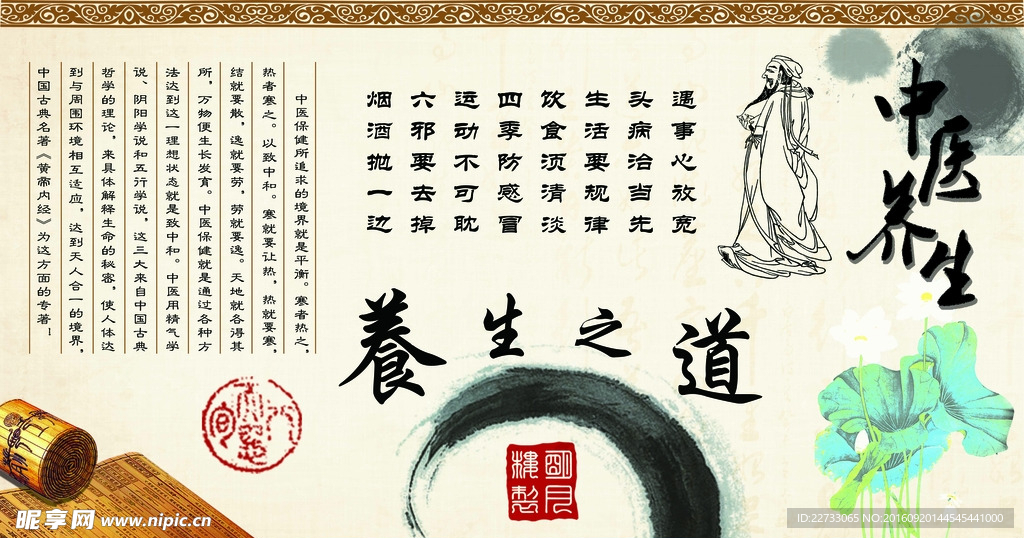 中医养生
遇事心放宽
头病治当先
生活要规律
饮食须清淡
四季防感冒
运动不可耽
六邪要去掉
烟酒抛一边
中医保健所追求的境界就是平衡。寒者热之，
热者寒之。以致中和。寒就要让热，热就要寒，
结就要散，逸就要劳，劳就要逸。天地就各得其
所，万物便生长发育。中医保健就是通过各种方
法达到这一理想状态就是致中和。中医用精气学
说、阴阳学说和五行学说，这三大来自中国古典
哲学的理论，来具体解释生命的秘密，使人体达
到与周围环境相互适应，达到天人合一的境界，
中国古典名著《黄帝内经》为这方面的专著！
養生之道
明月
楼製
昵享网 www.nipic.cn
ID:22733065 NO:20160920144545441000